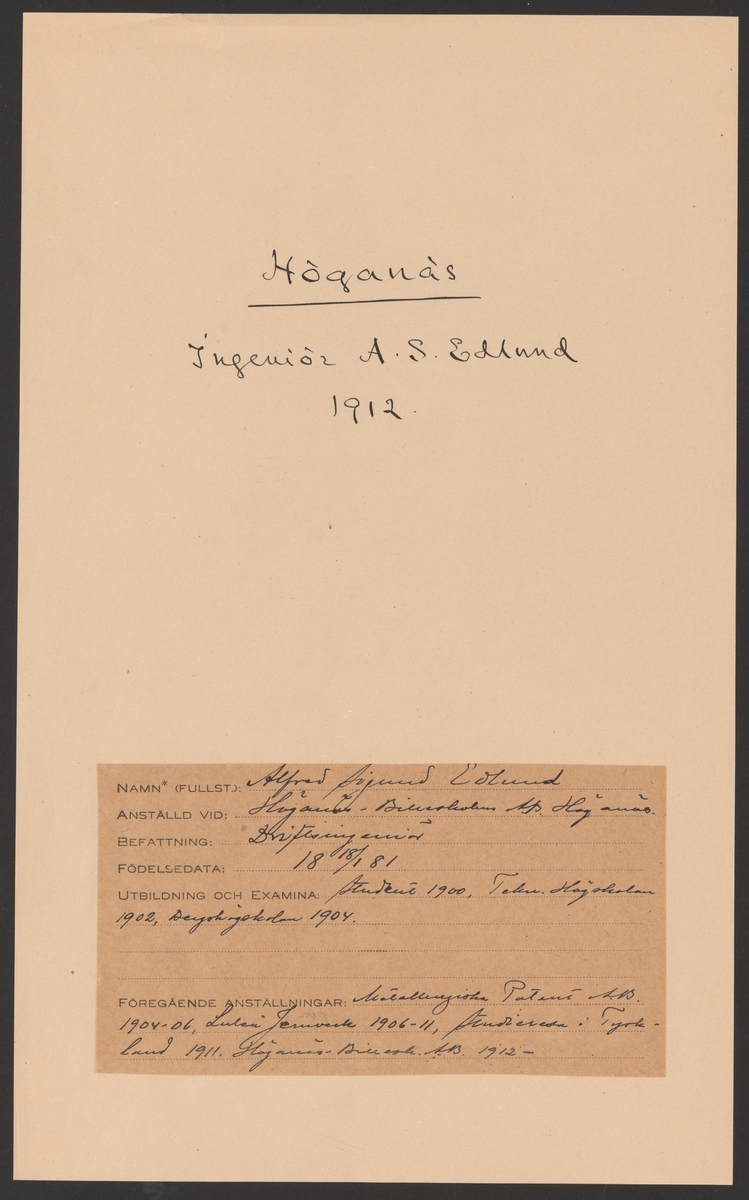 Höganäs
Ingeniör A. S. Edlund
1912.
NAMN* (FULLST.): Alfred Sigurd Edlund
ANSTÄLLD VID: Höganäs-Billesholms A.B. Höganäs.
BEFATTNING: Driftsingeniör
FÖDELSEDATA: 18 18/1 81
UTBILDNING OCH EXAMINA: Student 1900, Tekn. Högskolan
1902, Bergshögskolan 1904.
FÖREGÅENDE ANSTÄLLNINGAR: Metallurgiska Patent A.B.
1904-06, Luleå Jernverk 1906-11, Studieresa i Tysk-
land 1911. Höganäs-Billesh. A.B. 1912-